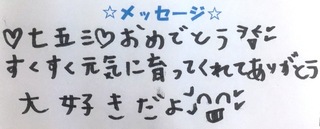 ☆メッセージ☆
♡七五三♡おめでとう
すくすく元気に育ってくれてありがとう
大好きだよ